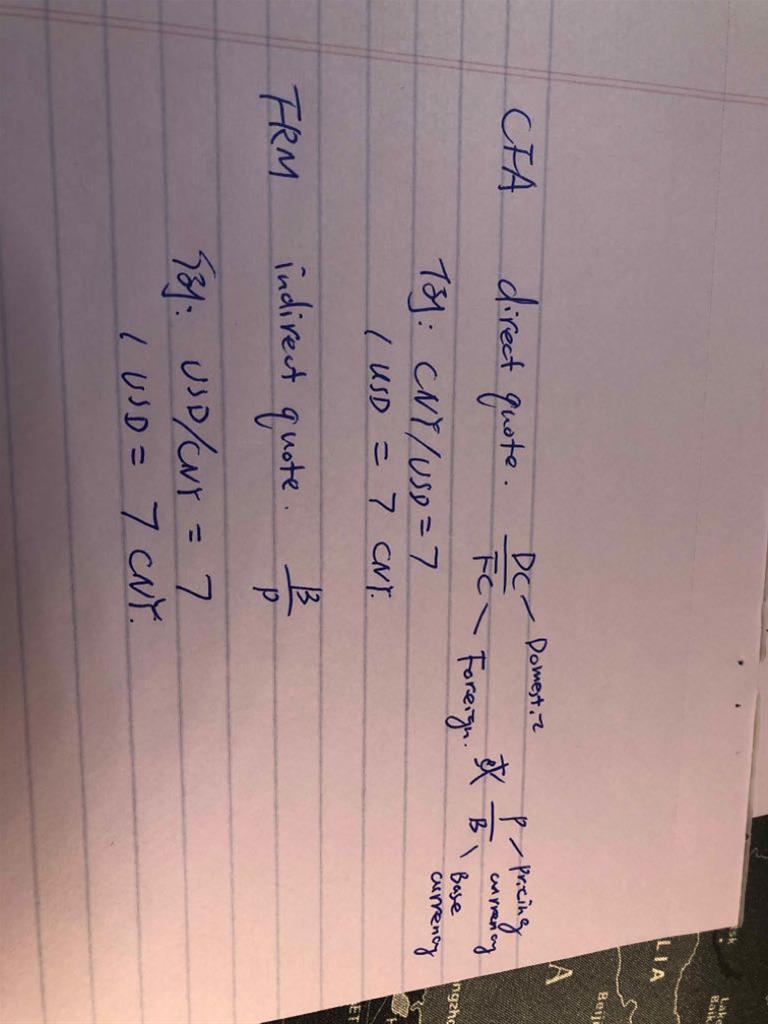 CFA direct quote. DC/FC Domestic Foreign. 或 P/B Pricing currency Base currency
例: CNY/USD = 7
1 USD = 7 CNY.
FRM indirect quote. B/P
例: USD/CNY = 7
1 USD = 7 CNY.
LIA
A
Beij
ngzho
Lake
Baik